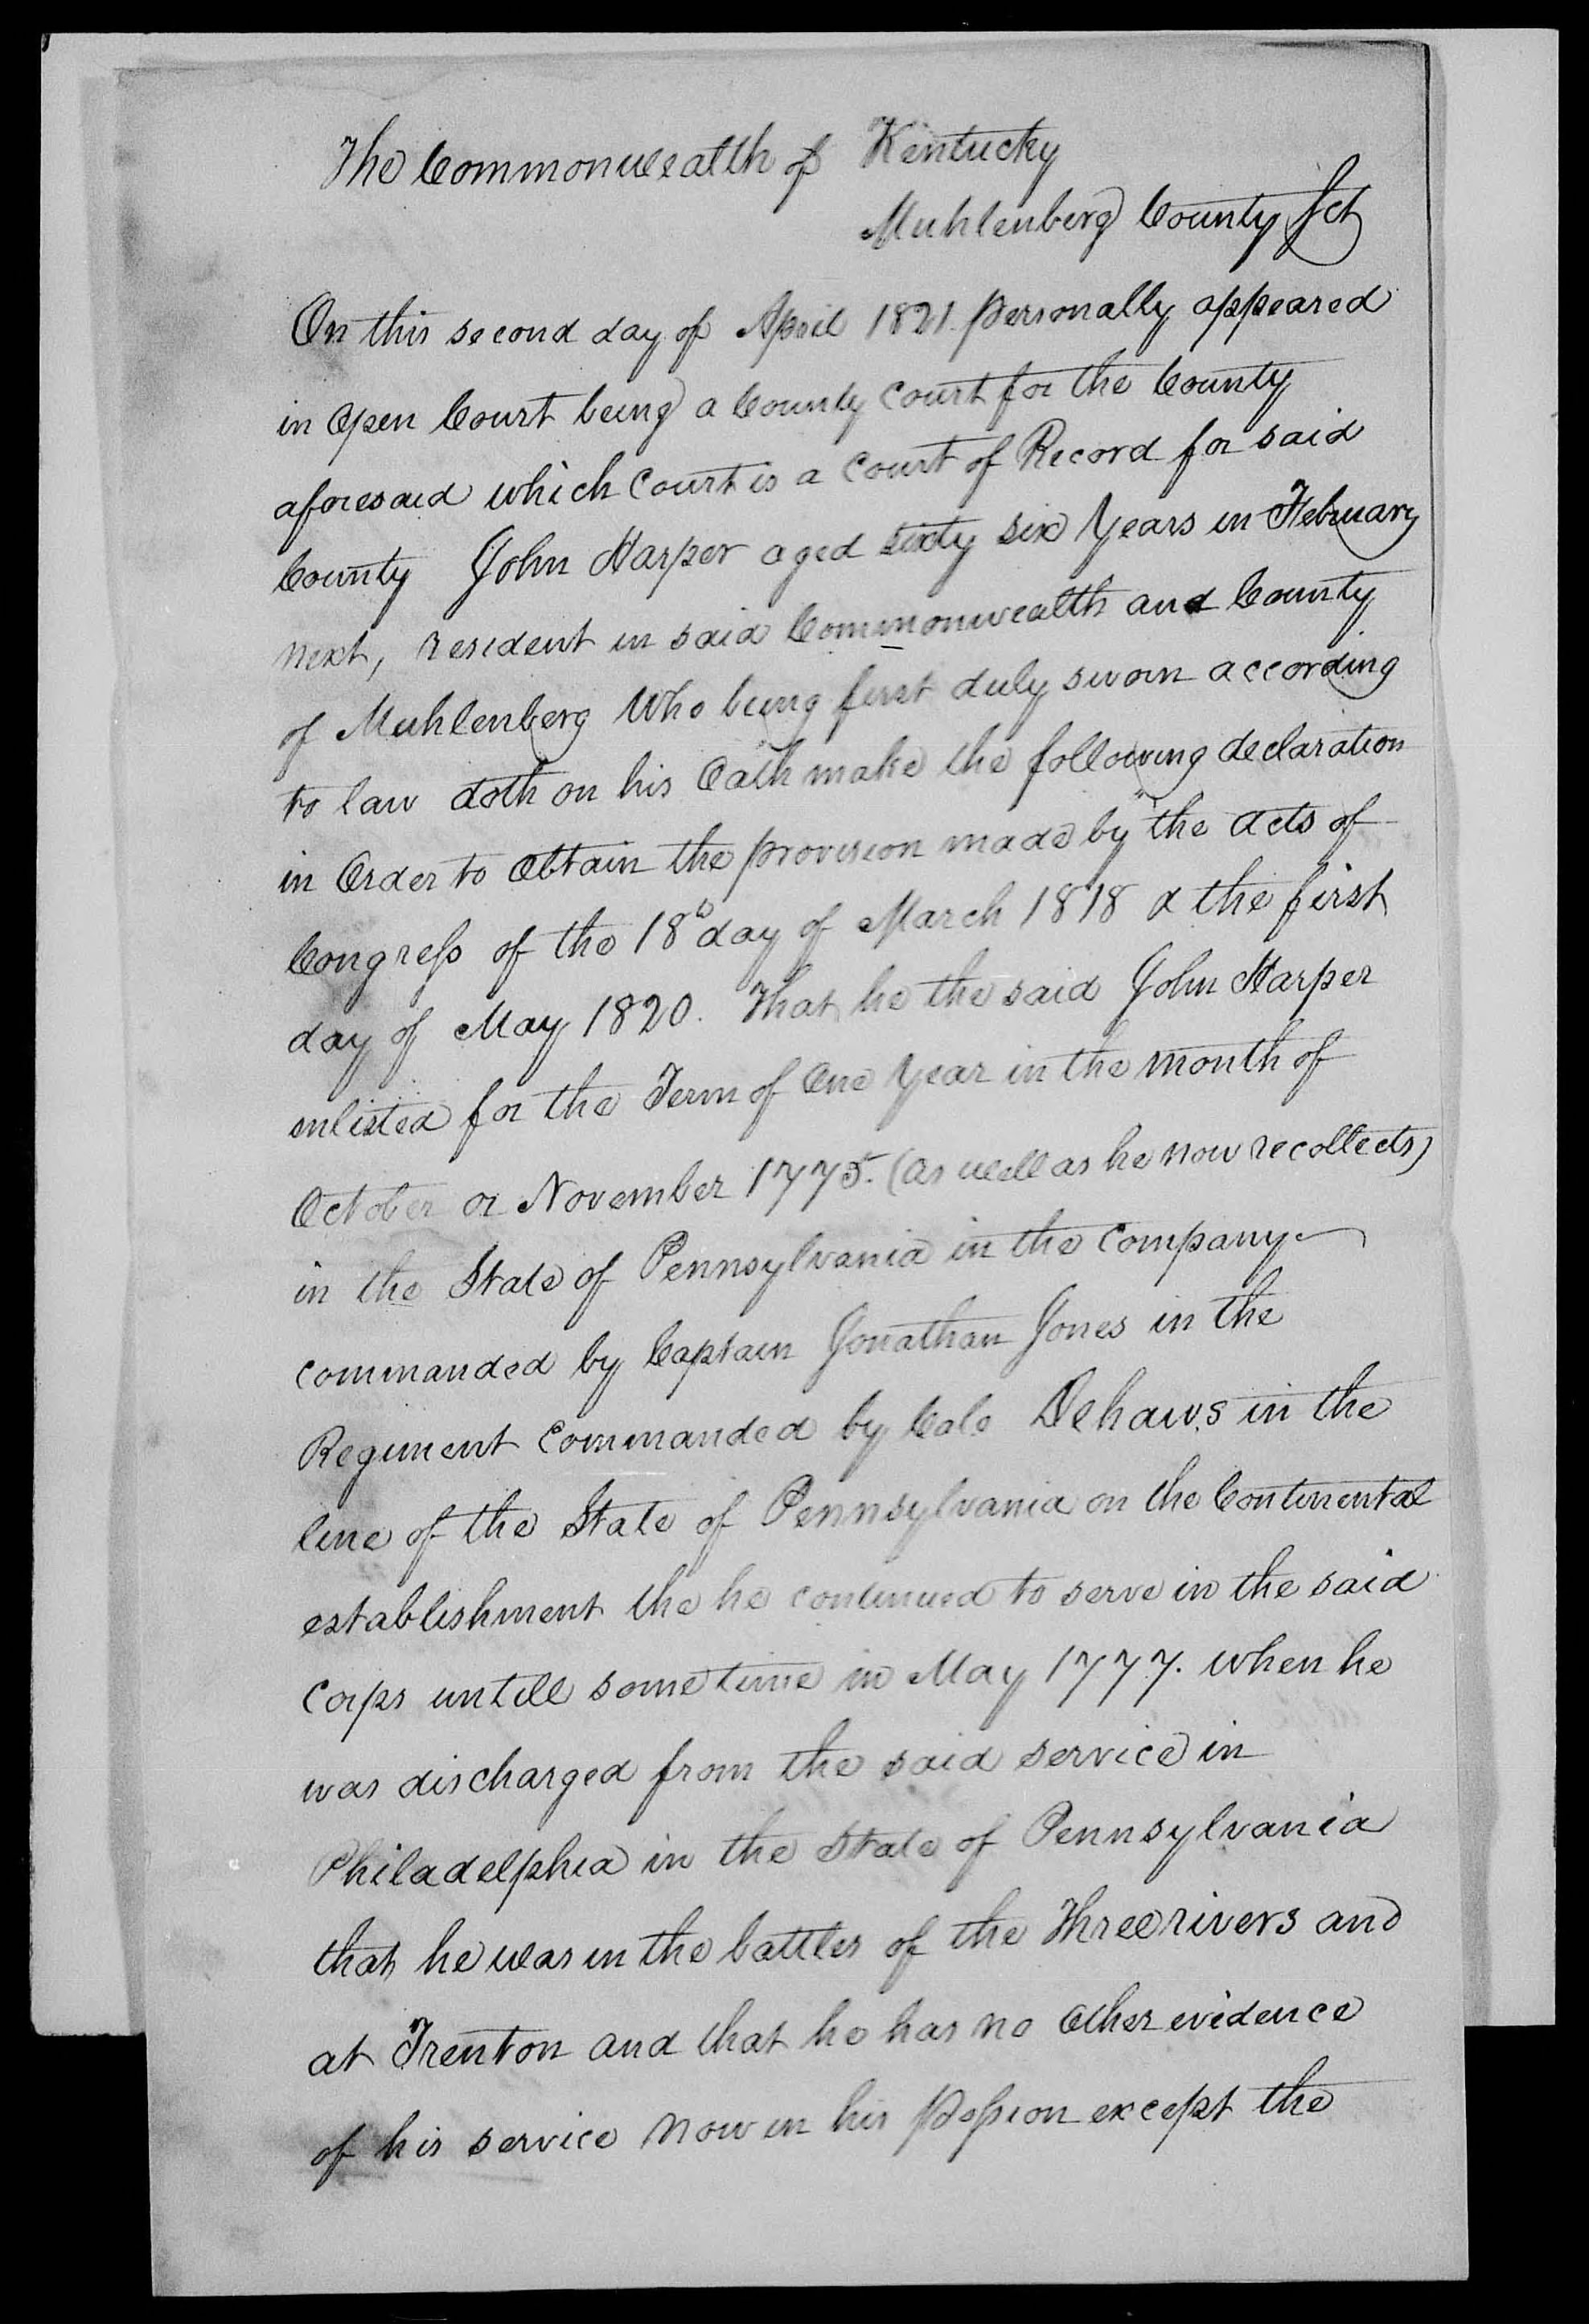 The Commonwealth of Kentucky
Muhlenberg County Sct
On this second day of April 1821. personally appeared
in Open Court being a County Court for the County
aforesaid which Court is a Court of Record for said
County John Harper aged sixty six Years in February
next, resident in said Commonwealth and County
of Muhlenberg Who being first duly sworn according
to law doth on his Oath make the following declaration
in Order to Obtain the provision made by the acts of
Congress of the 18th day of March 1818 & the first
day of May 1820. That he the said John Harper
enlisted for the Term of One Year in the month of
October or November 1775. (as well as he now recollects)
in the State of Pennsylvania in the Company
commanded by Captain Jonathan Jones in the
Regiment Commanded by Colo Dehaws in the
line of the State of Pennsylvania on the Continental
establishment the he continued to serve in the said
corps untill some time in May 1777. when he
was discharged from the said service in
Philadelphia in the State of Pennsylvania
that he was in the battles of the Three rivers and
at Trenton and that he has no Other evidence
of his service now in his possion except the